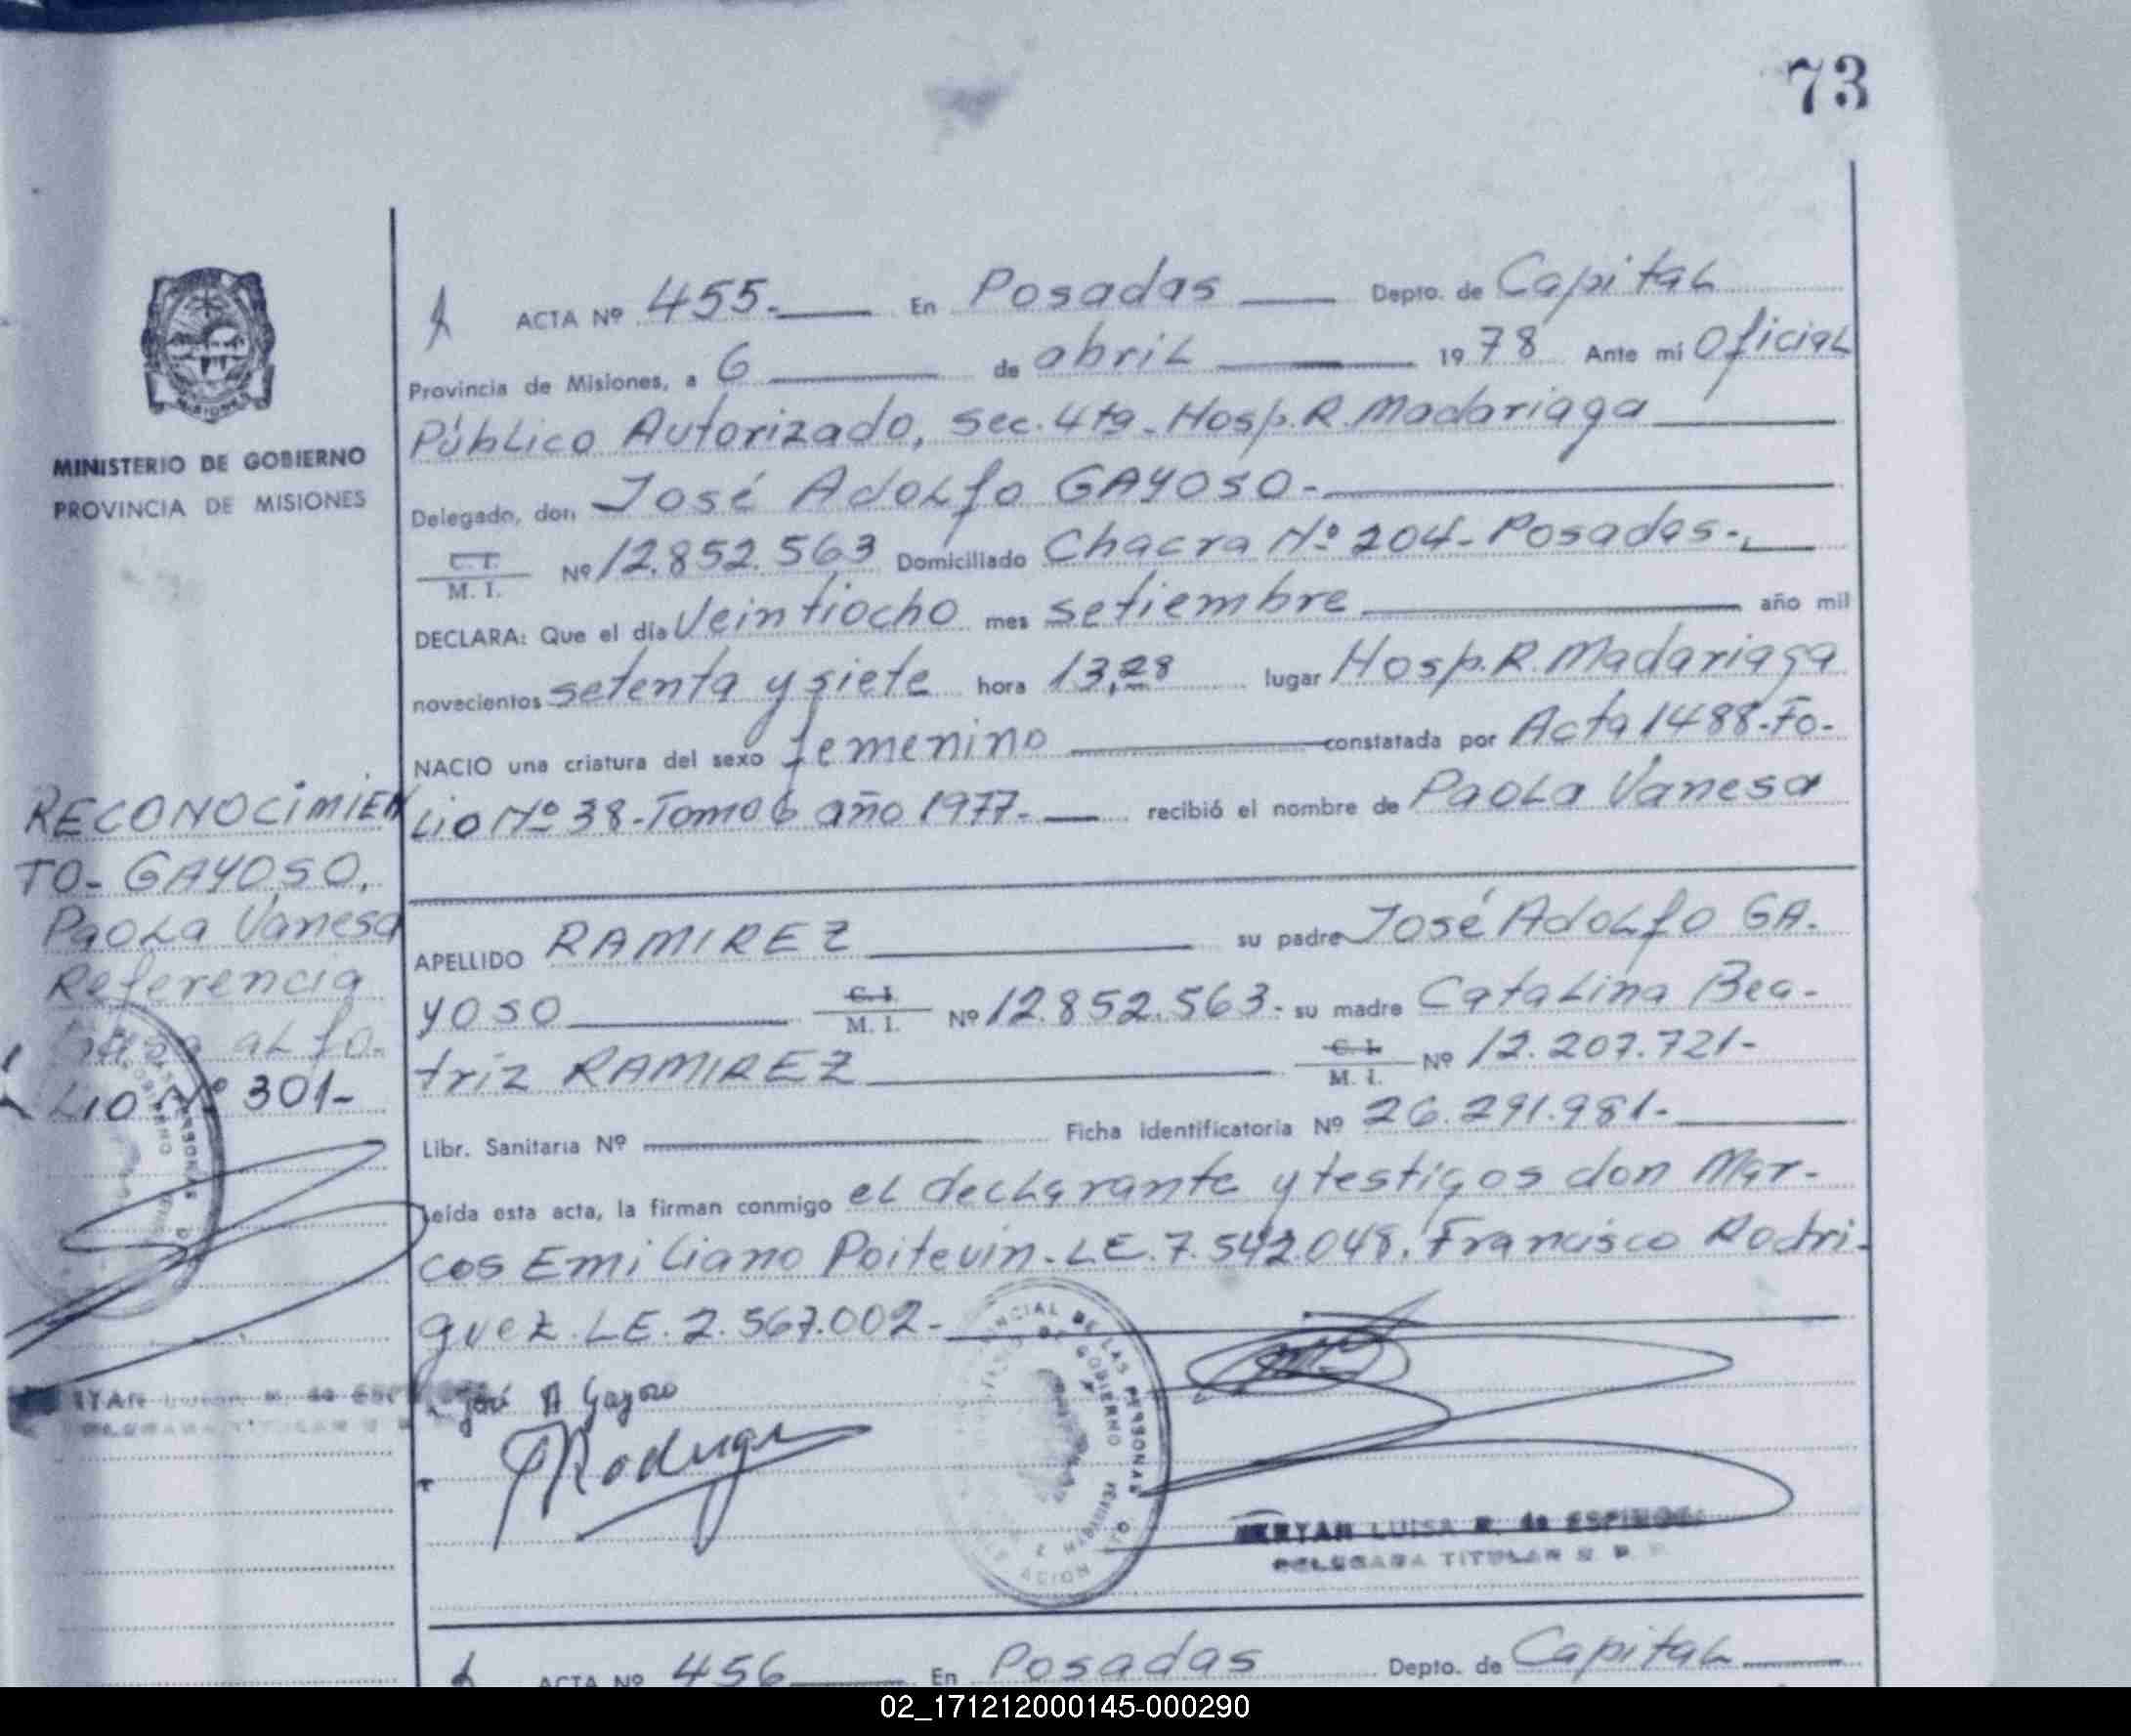 73
ACTA Nº 455.- En Posadas Depto. de Capital
Provincia de Misiones, a 6 de abril 1978 Ante mí Oficial
Público Autorizado, Sec. 4ta. Hosp. R. Madariaga
Delegado, don José Adolfo GAYOSO.-
C. I. M. I. Nº 12.852.563 Domiciliado Chacra Nº 204- Posadas.-
DECLARA: Que el día Veintiocho mes setiembre año mil
novecientos setenta y siete hora 13,28 lugar Hosp. R. Madariaga
NACIO una criatura del sexo femenino constatada por Acta 1488-Fo-
lio Nº 38-Tomo 6 año 1977.- recibió el nombre de Paola Vanesa
APELLIDO RAMIREZ su padre José Adolfo GA-
yoso C. I. M. I. Nº 12.852.563- su madre Catalina Bea-
triz RAMIREZ C. I. M. I. Nº 12.207.721-
Libr. Sanitaria Nº Ficha identificatoria Nº 26.291.981-
Leída esta acta, la firman conmigo el declarante y testigos don Mar-
cos Emiliano Poitevin. LE. 7.542.048. Francisco Rodri-
guez. LE. 2.567.002-
José A Gayoso
LUISA R. de ESPINOSA
DELEGADA TITULAR
MISIONES
MINISTERIO DE GOBIERNO
PROVINCIA DE MISIONES
RECONOCIMIEN
TO- GAYOSO,
Paola Vanesa
Referencia
al fo-
Lio Nº 301-
DE LAS PERSONAS
GOBIERNO
ACTA Nº 456 En Posadas Depto. de Capital
02_171212000145-000290